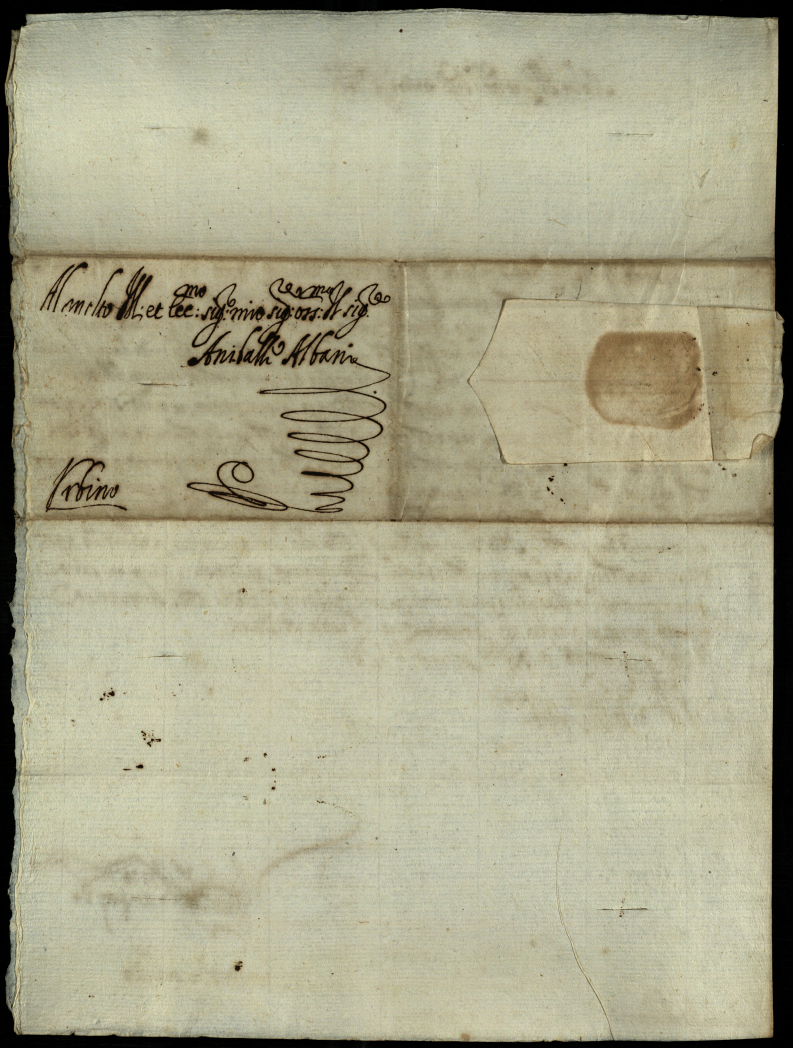 Al molto Ill: et ecc:mo sig:re mio sig:re oss:mo Il sig:re
Aniballe Albani
Urbino